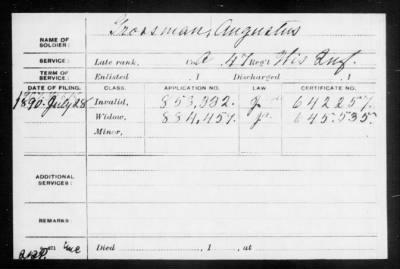 NAME OF SOLDIER: Groosman, Augustus
SERVICE: Late rank, Co. A, 47 Reg't Wis Inf.
TERM OF SERVICE: Enlisted , 1 Discharged , 1
DATE OF FILING. CLASS. APPLICATION NO. LAW. CERTIFICATE NO.
1890. July, 28 Invalid, 853,332. 642257.
Widow, 884,451. 645.535.
Minor,
ADDITIONAL SERVICES:
REMARKS:
Died , 1 , at